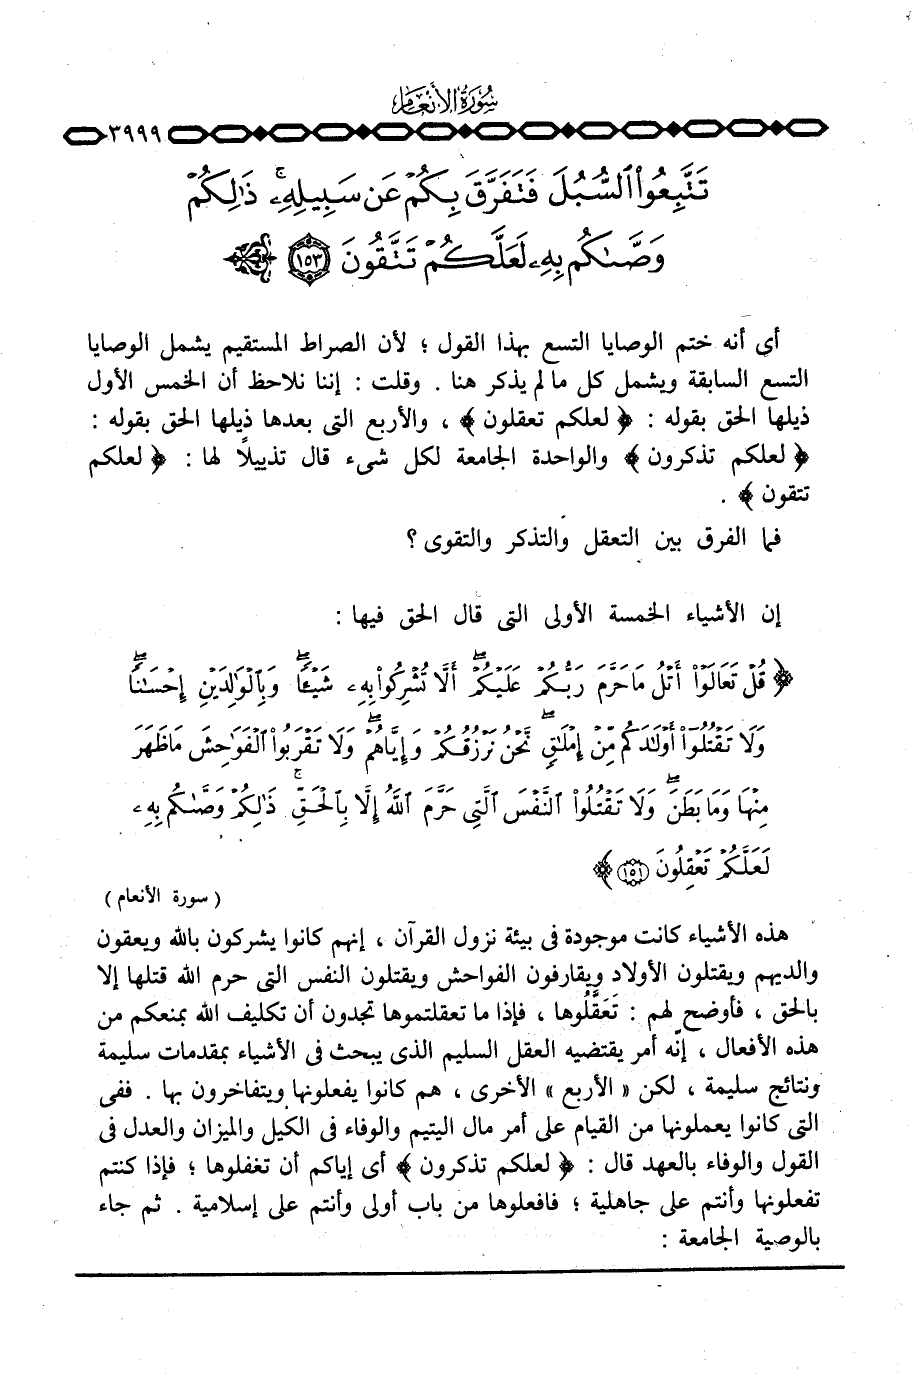 سورة الأنعام
٣٩٩٩
تَتَّبِعُوا۟ ٱلسُّبُلَ فَتَفَرَّقَ بِكُمْ عَن سَبِيلِهِۦ ۚ ذَٰلِكُمْ
وَصَّىٰكُم بِهِۦ لَعَلَّكُمْ تَتَّقُونَ ﴿١٥٣﴾
أى أنه ختم الوصايا التسع بهذا القول ؛ لأن الصراط المستقيم يشمل الوصايا
التسع السابقة ويشمل كل ما لم يذكر هنا . وقلت : إننا نلاحظ أن الخمس الأول
ذيلها الحق بقوله : ﴿ لعلكم تعقلون ﴾ ، والأربع التى بعدها ذيلها الحق بقوله :
﴿ لعلكم تذكرون ﴾ والواحدة الجامعة لكل شىء قال تذييلاً لها : ﴿ لعلكم
تتقون ﴾ .
فما الفرق بين التعقل والتذكر والتقوى ؟
إن الأشياء الخمسة الأولى التى قال الحق فيها :
﴿ قُلْ تَعَالَوْا۟ أَتْلُ مَا حَرَّمَ رَبُّكُمْ عَلَيْكُمْ ۖ أَلَّا تُشْرِكُوا۟ بِهِۦ شَيْـًٔا ۖ وَبِٱلْوَٰلِدَيْنِ إِحْسَـٰنًا ۖ
وَلَا تَقْتُلُوٓا۟ أَوْلَـٰدَكُم مِّنْ إِمْلَـٰقٍ ۖ نَّحْنُ نَرْزُقُكُمْ وَإِيَّاهُمْ ۖ وَلَا تَقْرَبُوا۟ ٱلْفَوَٰحِشَ مَا ظَهَرَ
مِنْهَا وَمَا بَطَنَ ۖ وَلَا تَقْتُلُوا۟ ٱلنَّفْسَ ٱلَّتِى حَرَّمَ ٱللَّهُ إِلَّا بِٱلْحَقِّ ۚ ذَٰلِكُمْ وَصَّىٰكُم بِهِۦ
لَعَلَّكُمْ تَعْقِلُونَ ﴿١٥١﴾ ﴾
( سورة الأنعام )
هذه الأشياء كانت موجودة فى بيئة نزول القرآن ، إنهم كانوا يشركون بالله ويعقون
والديهم ويقتلون الأولاد ويقارفون الفواحش ويقتلون النفس التى حرم الله قتلها إلا
بالحق ، فأوضح لهم : تَعَقَّلُوها ، فإذا ما تعقلتموها تجدون أن تكليف الله بمنعكم من
هذه الأفعال ، إنّه أمر يقتضيه العقل السليم الذى يبحث فى الأشياء بمقدمات سليمة
ونتائج سليمة ، لكن « الأربع » الأخرى ، هم كانوا يفعلونها ويتفاخرون بها . ففى
التى كانوا يعملونها من القيام على أمر مال اليتيم والوفاء فى الكيل والميزان والعدل فى
القول والوفاء بالعهد قال : ﴿ لعلكم تذكرون ﴾ أى إياكم أن تغفلوها ؛ فإذا كنتم
تفعلونها وأنتم على جاهلية ؛ فافعلوها من باب أولى وأنتم على إسلامية . ثم جاء
بالوصية الجامعة :